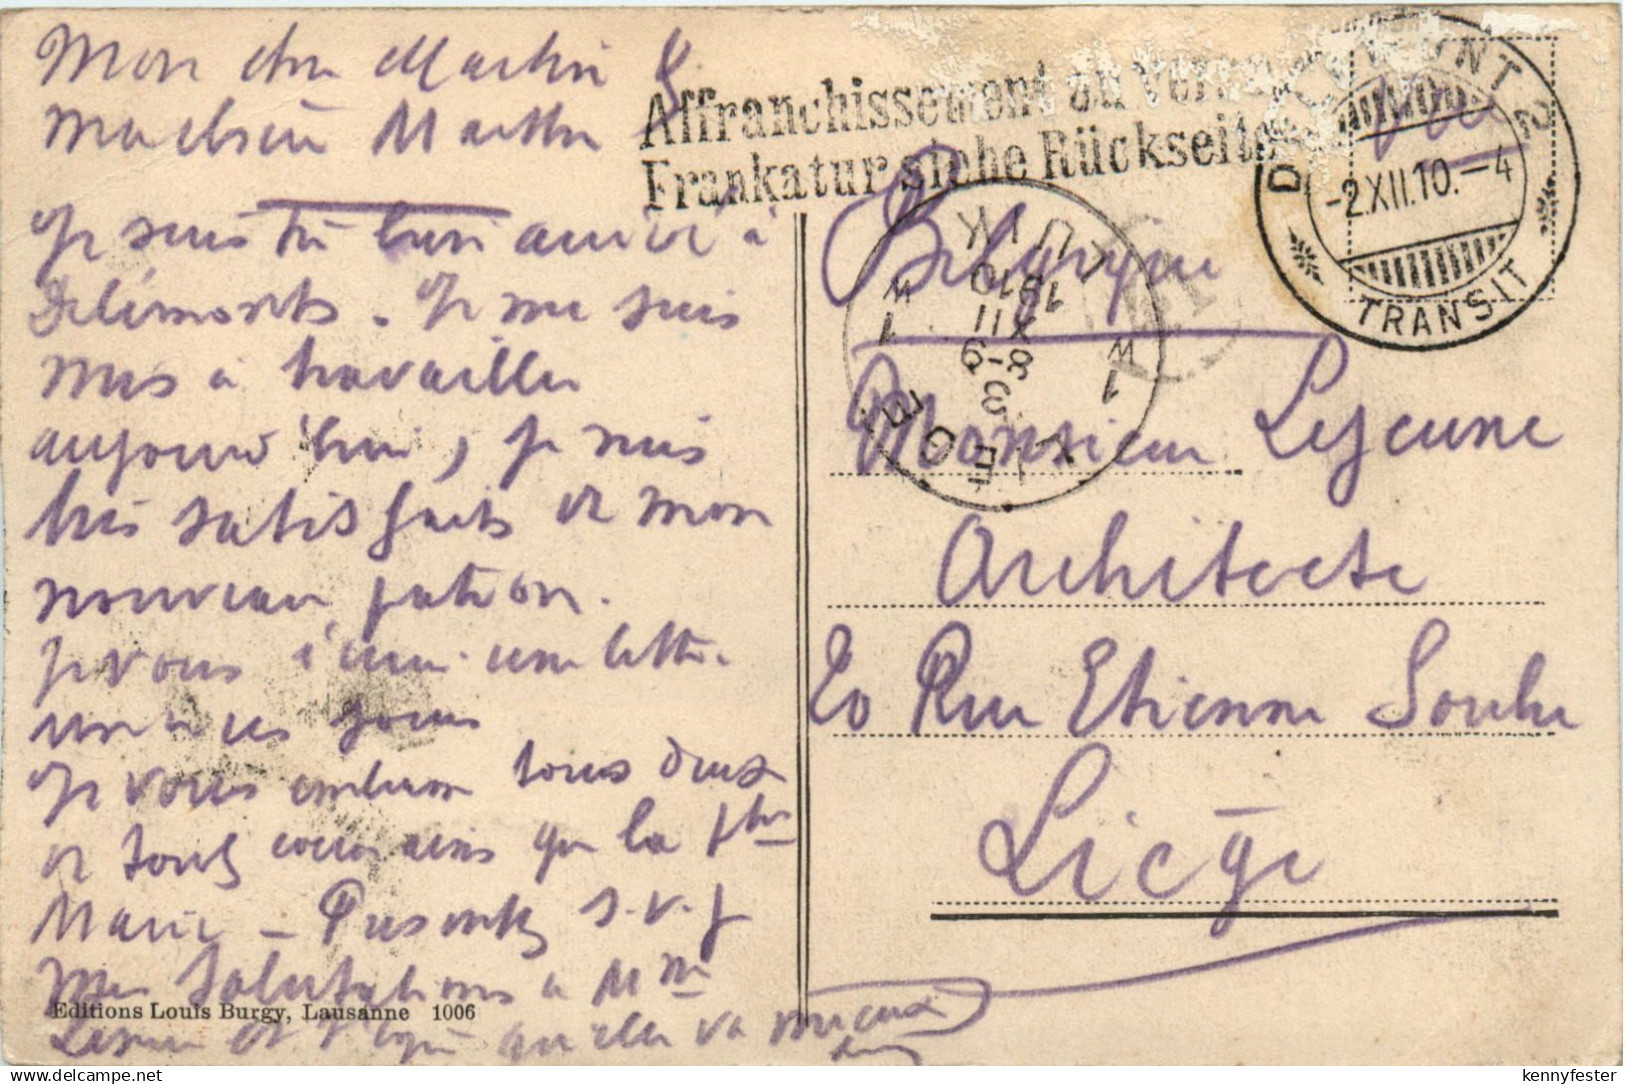 Mon cher Martin &
Machère Marthe
Je suis très bien arrivé à
Delémonts. Je me suis
mis à travailler
aujourd'hui, je suis
très satisfaits de mon
nouveau patron.
Je vous une lettre
un de ces jours
Je vous embrasse tous deux
et tous ainsi que la
Marie - Presentez s.v.p
mes salutations à Mme
Lejeune et qu'elle va mieux
Editions Louis Burgy, Lausanne 1006
Affranchissement au verso
Frankatur siehe Rückseite
DELÉMONT 2
-2.XII.10.-4
TRANSIT
LUIK
1910
XII
8-9
LIÉGE
1W
1W
Belgique
Monsieur Lejeune
Architecte
20 Rue Etienne Soubre
Liège
kennyfester